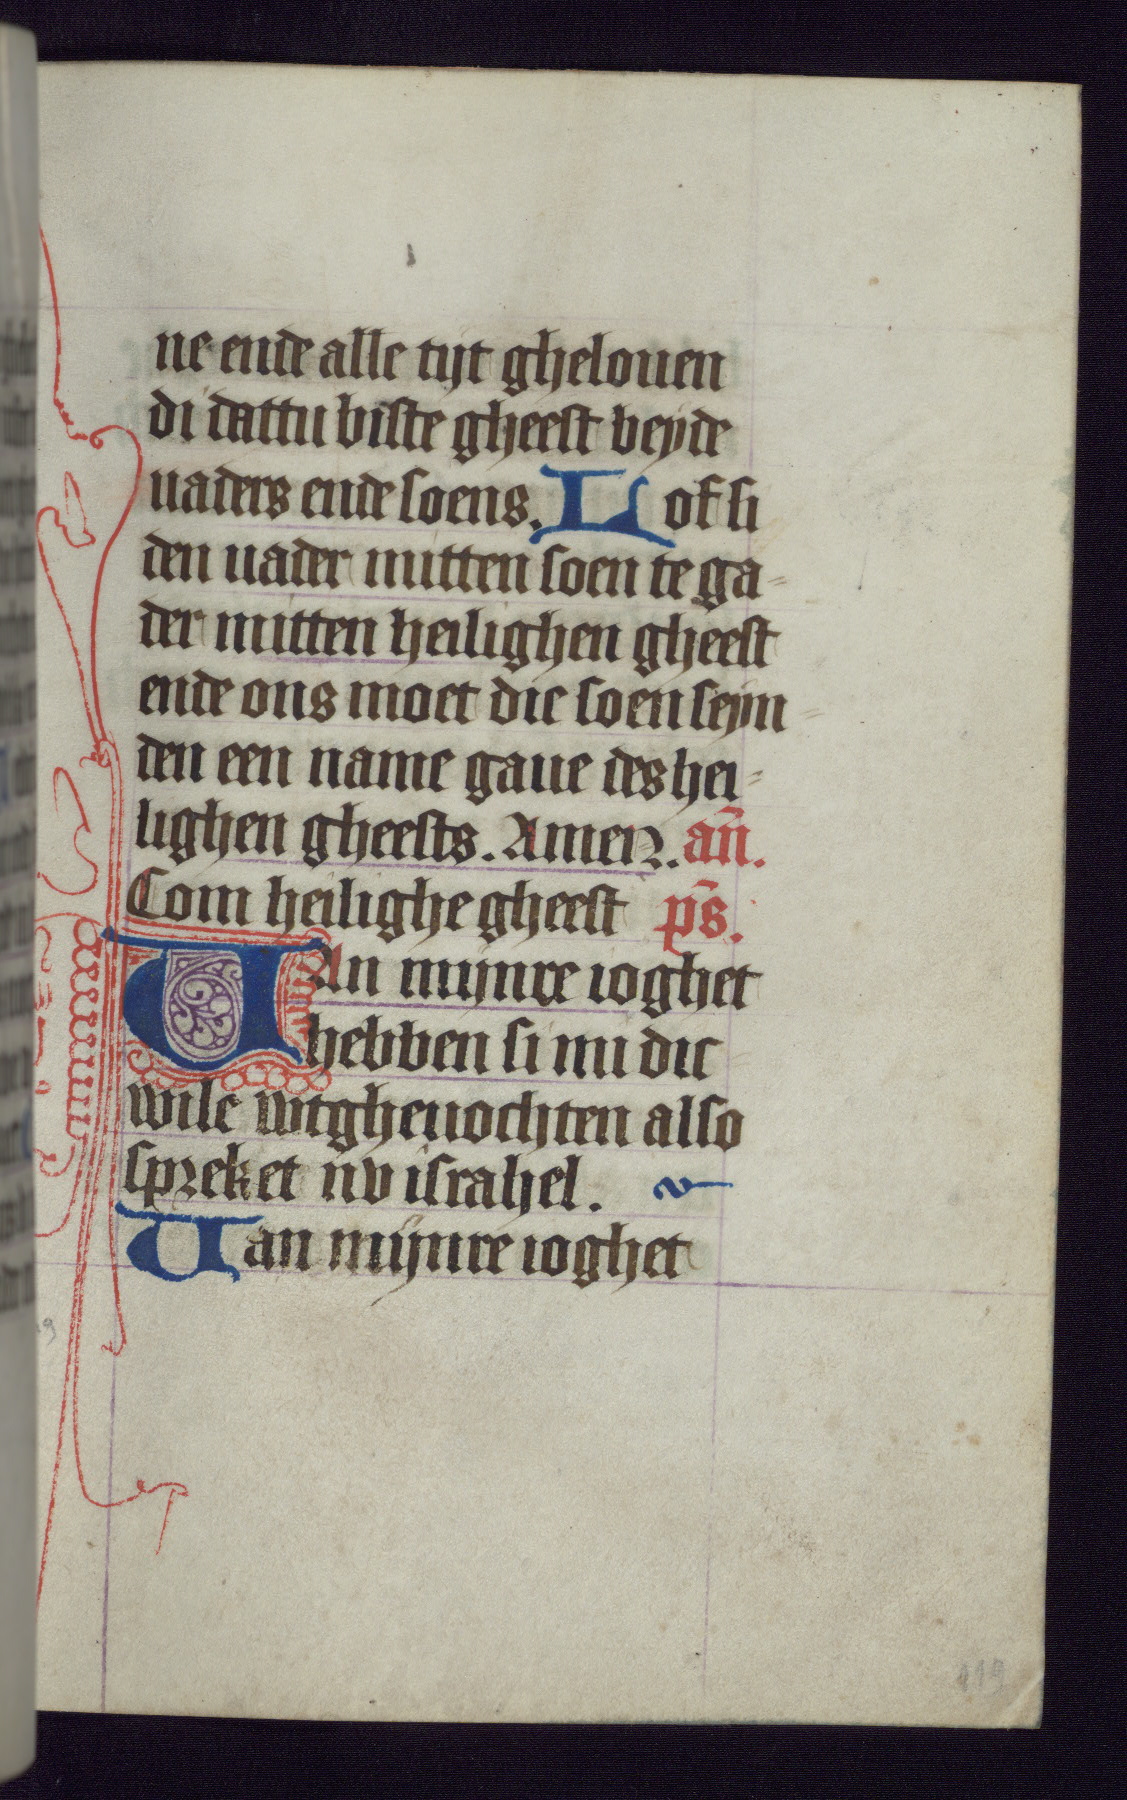 ne ende alle tijt ghelouen
di dattu biste gheest beyde
uaders ende soens. Lof si
den uader mitten soen te ga-
der mitten heilighen gheest
ende ons moet die soen seyn-
den een name gaue des hei-
lighen gheests. Amen. an̄.
Com heilighe gheest p̄s.
Uan mijnre ioghet
hebben si mi dic
wile wtgheuochten also
spreket nv israhel.
Uan mijnre ioghet
119